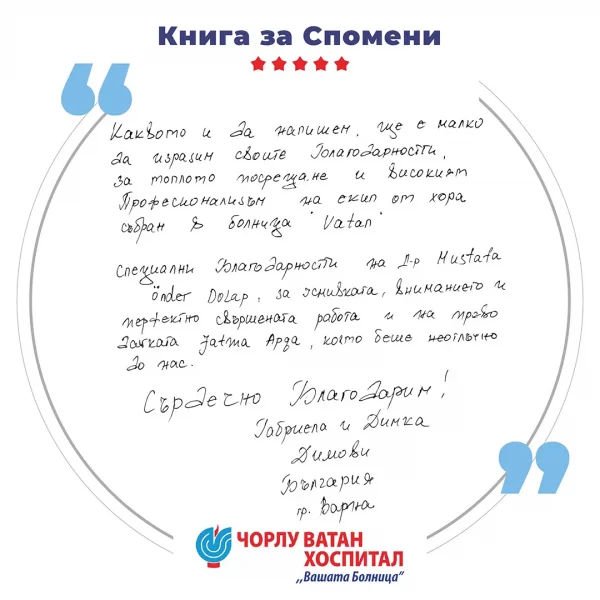 Книга за Спомени
Каквото и да напишем, ще е малко
да изразим своите Благодарности,
за топлото посрещане и високият
Професионализъм на екип от хора
събран в болница "Vatan"
Специални Благодарности на Д-р Mustafa
Önder Dolap, за Усмивката, Вниманието и
перфектно свършената работа и на
Fatma Арда, която беше неотлъчно
до нас.
Сърдечно Благодарим!
Габриела и Динка
Димови
България
гр. Варна
ЧОРЛУ ВАТАН
ХОСПИТАЛ
,,Вашата Болница"